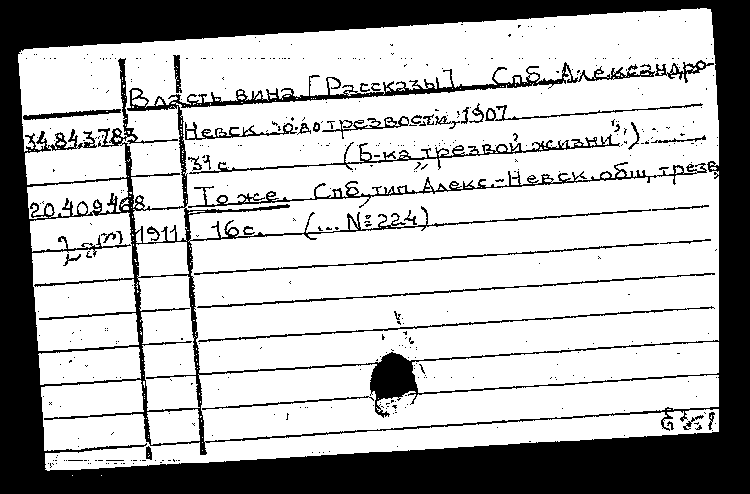 Власть вина. [Рассказы]. Спб., Александро-
34.843.783. Невск. о-во трезвости, 1907.
с. (Б-ка „трезвой жизни".)
20.409.468. То же. Спб., тип. Алекс.-Невск. общ. трезв.
1911. 16 с. (... № 224).